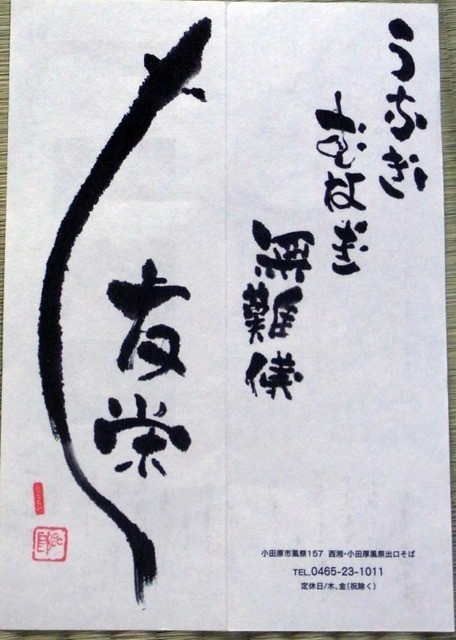 うなぎ
むなぎ
無難儀
友栄
小田原市風祭157 西湘・小田厚風祭出口そば
TEL.0465-23-1011
定休日/木、金(祝除く)